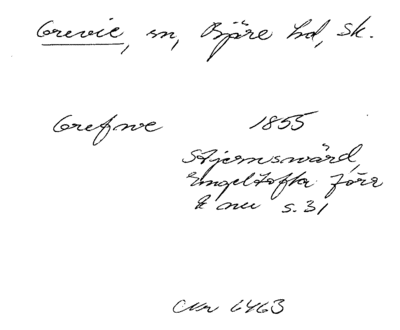 Grevie, sn, Bjäre hd, Sk.
Grefvie 1855
Stjernsvärd,
Engeltofta förr
& nu s. 31
6463